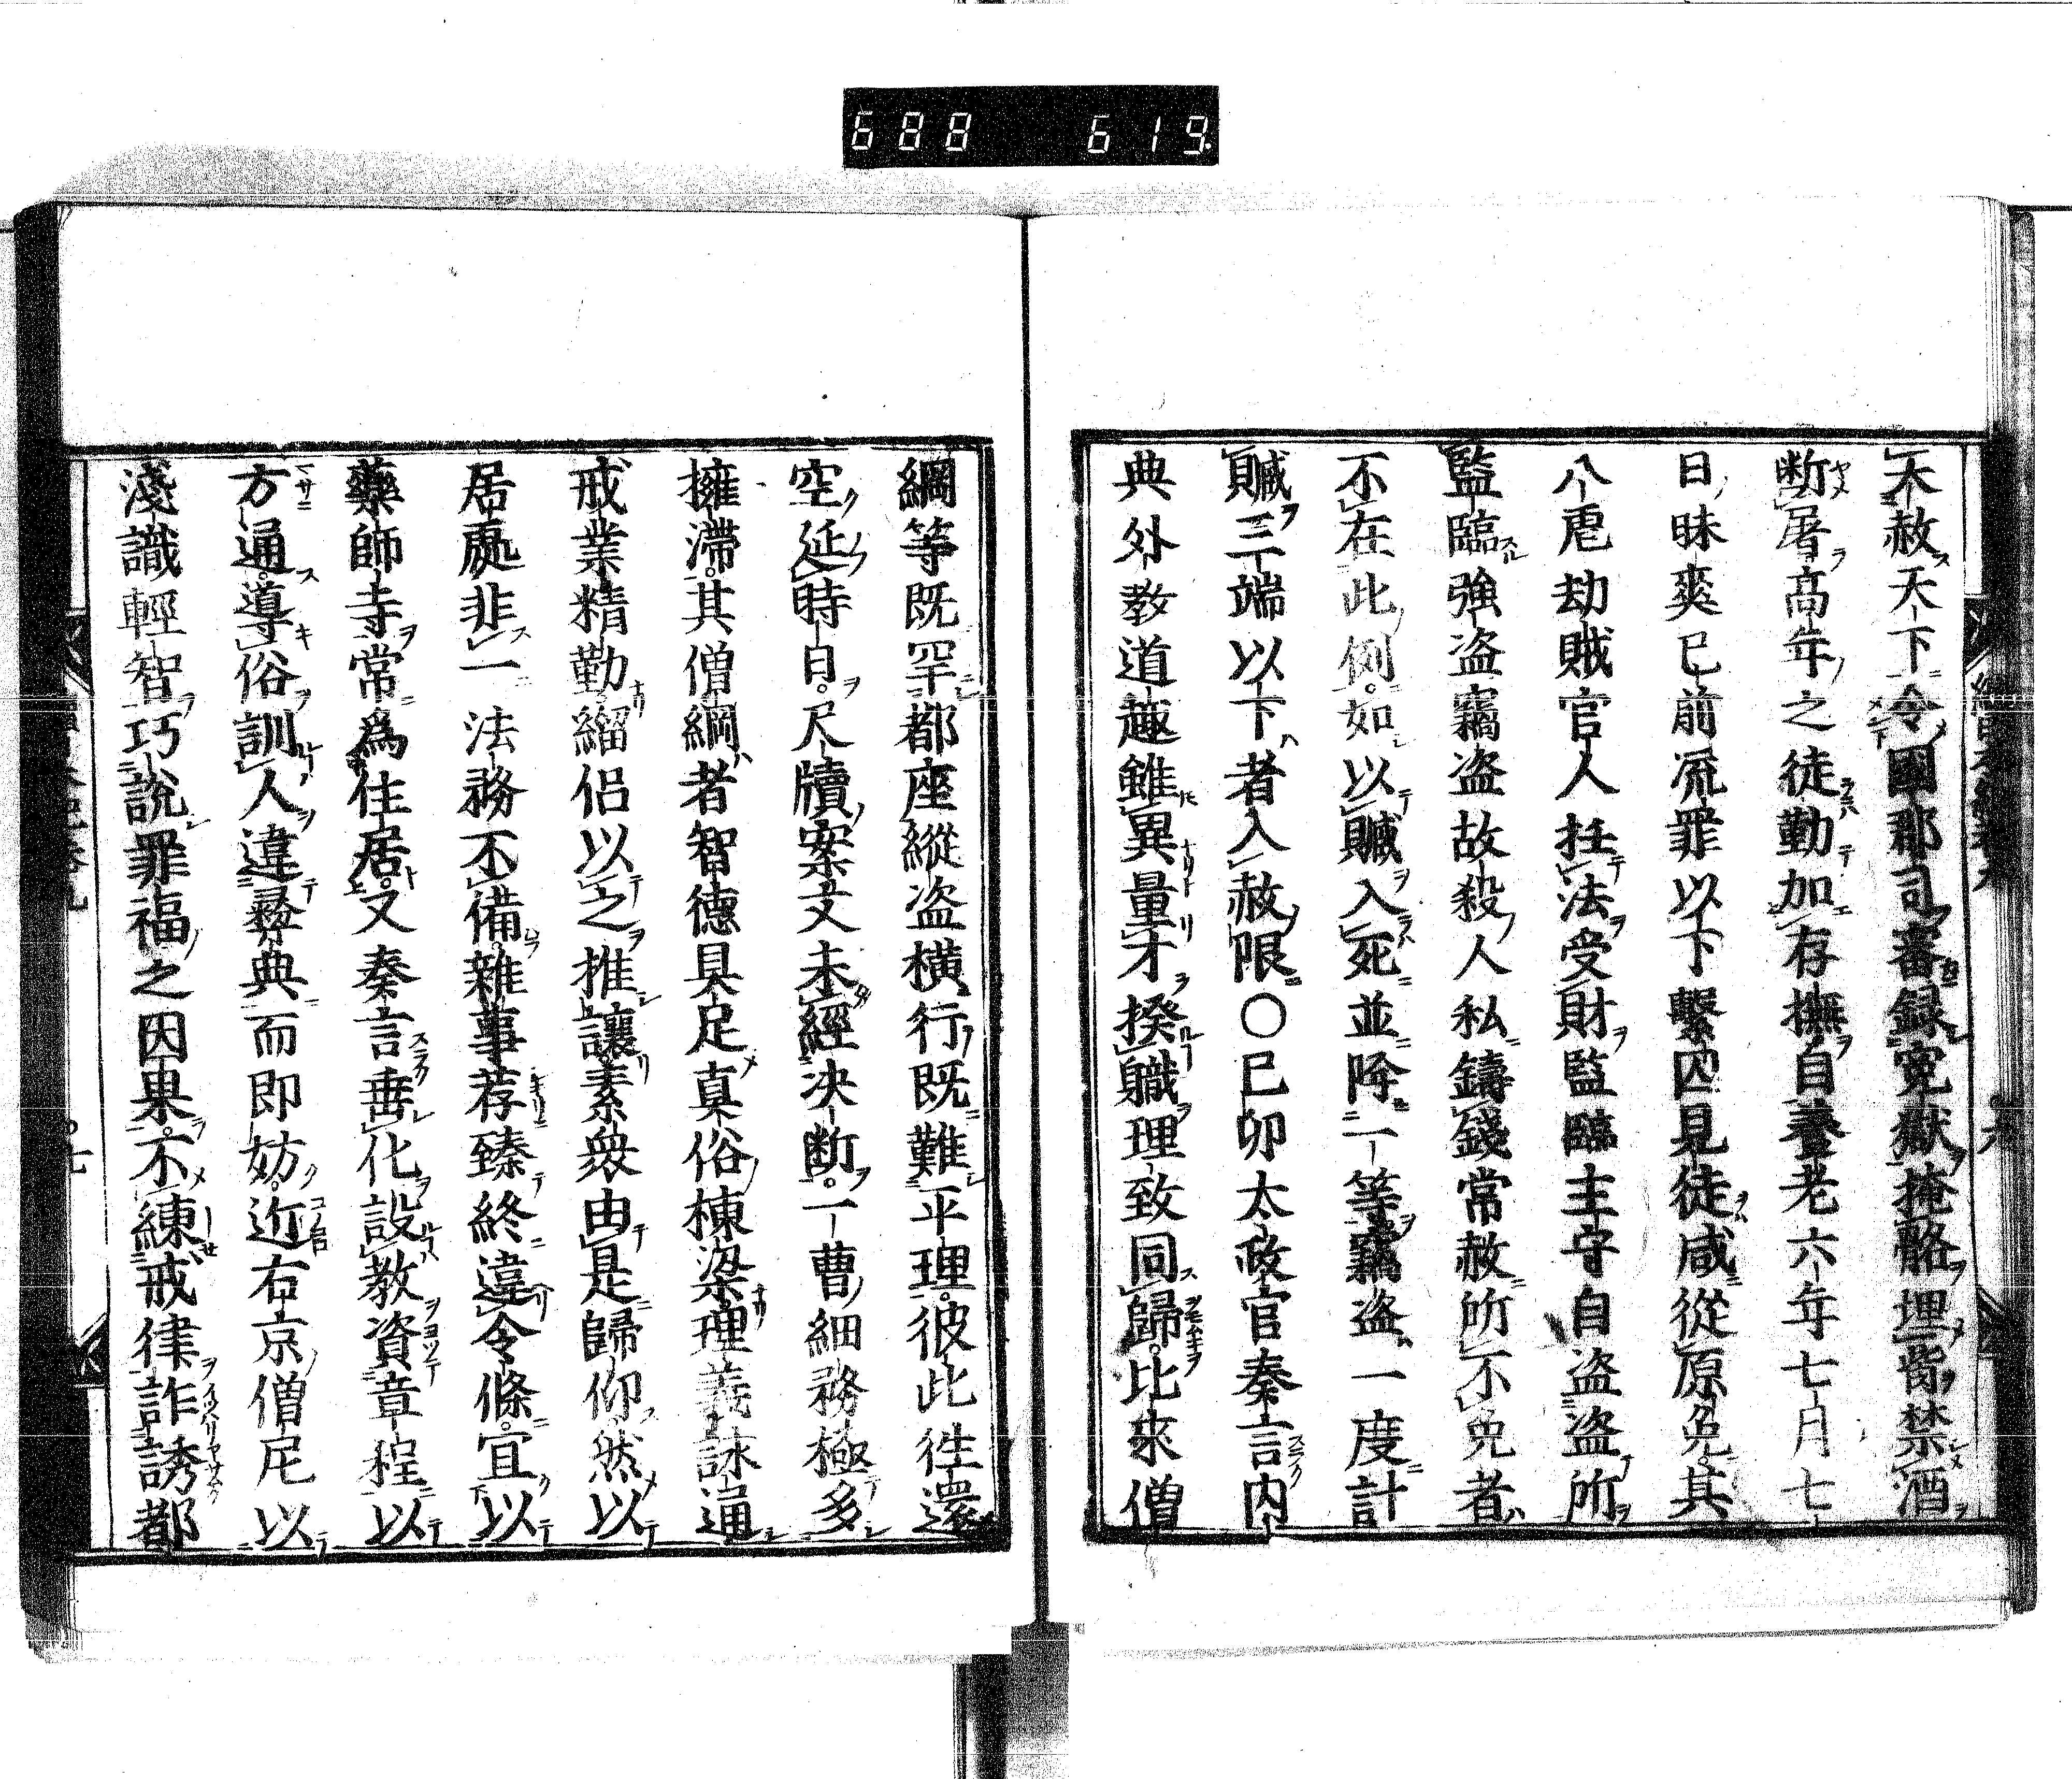 688 619
大赦天下令國郡司審録寃獄掩骼埋胔禁酒
断屠高年之徒勤加存撫自養老六年七月七
日昧爽已前流罪以下繫囚見徒咸從原免其
八虐劫賊官人枉法受財監臨主守自盗盗所
監臨強盗竊盗故殺人私鑄錢常赦所不免者
不在此例如以贓入死並降一等竊盗一度計
贓三端以下者入赦限○己卯太政官奏言内
典外教道趣雖異量才揆職理致同歸比來僧
綱等既罕都座縱盗横行既難平理彼此徃還
空延時日尺牘案文未經决断一曹細務極多
擁滯其僧綱者智德具足真俗棟梁理義詠通
戒業精勤緇侶以之推讓素衆由是歸仰然以
居處非一法務不備雜事荐臻終違令條宜以
藥師寺常爲住居又奏言垂化設教資章程以
方通導俗訓人違彝典而即妨近右京僧尼以
淺識輕智巧説罪福之因果不練戒律詐誘都